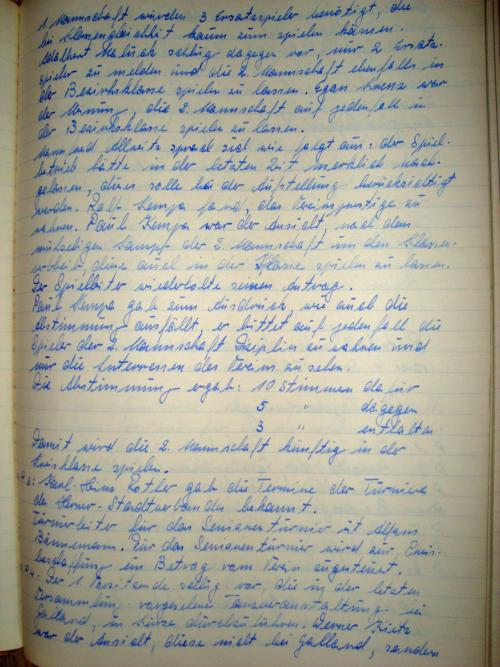 1. Mannschaft würden 3 Ersatzspieler benötigt, die
bei Klassengleichheit kaum zum spielen kämen.
schlug dagegen vor, nur 2 Ersatz-
spieler zu melden und die 2. Mannschaft ebenfalls in
der Bezirksklasse spielen zu lassen. Egon war
der Meinung, die 2. Mannschaft auf jeden fall in
der Bezirksklasse spielen zu lassen.
Manfred sprach sich wie folgt aus: der Spiel-
betrieb hätte in der letzten Zeit merklich nach-
gelassen, dieses solle bei der Aufstellung berücksichtigt
werden. Ralf Kempa fand, das Vereinsprestige zu
wahren. Paul Kempa war der Ansicht, nach dem
Kampf der 2. Mannschaft um den Klassen-
diese auch in der Klasse spielen zu lassen.
Der Spielleiter wiederholte seinen Antrag.
Paul Kempa gab zum Ausdruck, wie auch die
Abstimmung ausfällt, er bittet auf jeden fall die
Spieler der 2. Mannschaft Disziplin zu wahren und
nur die Interessen des Vereins zu sehen.
Die Abstimmung ergab: 10 Stimmen dafür
5 " dagegen
3 " enthalten
Damit wird die 2. Mannschaft künftig in der
Kreisklasse spielen.
Karl-Heinz Rother gab die Termine der Turniere
des Herner-Stadtverbandes bekannt.
Turnierleiter für das Seniorenturnier ist Alfons
Bännemann. Für das Seniorenturnier wird zur Preis-
beschaffung ein Betrag vom Verein zugesteuert.
Der 1. Vorsitzende schlug vor, die in der letzten
Versammlung vorgesehene Tanzveranstaltung bei
Galland, in durchzuführen. Werner
war der Ansicht, diese nicht bei Galland, sondern